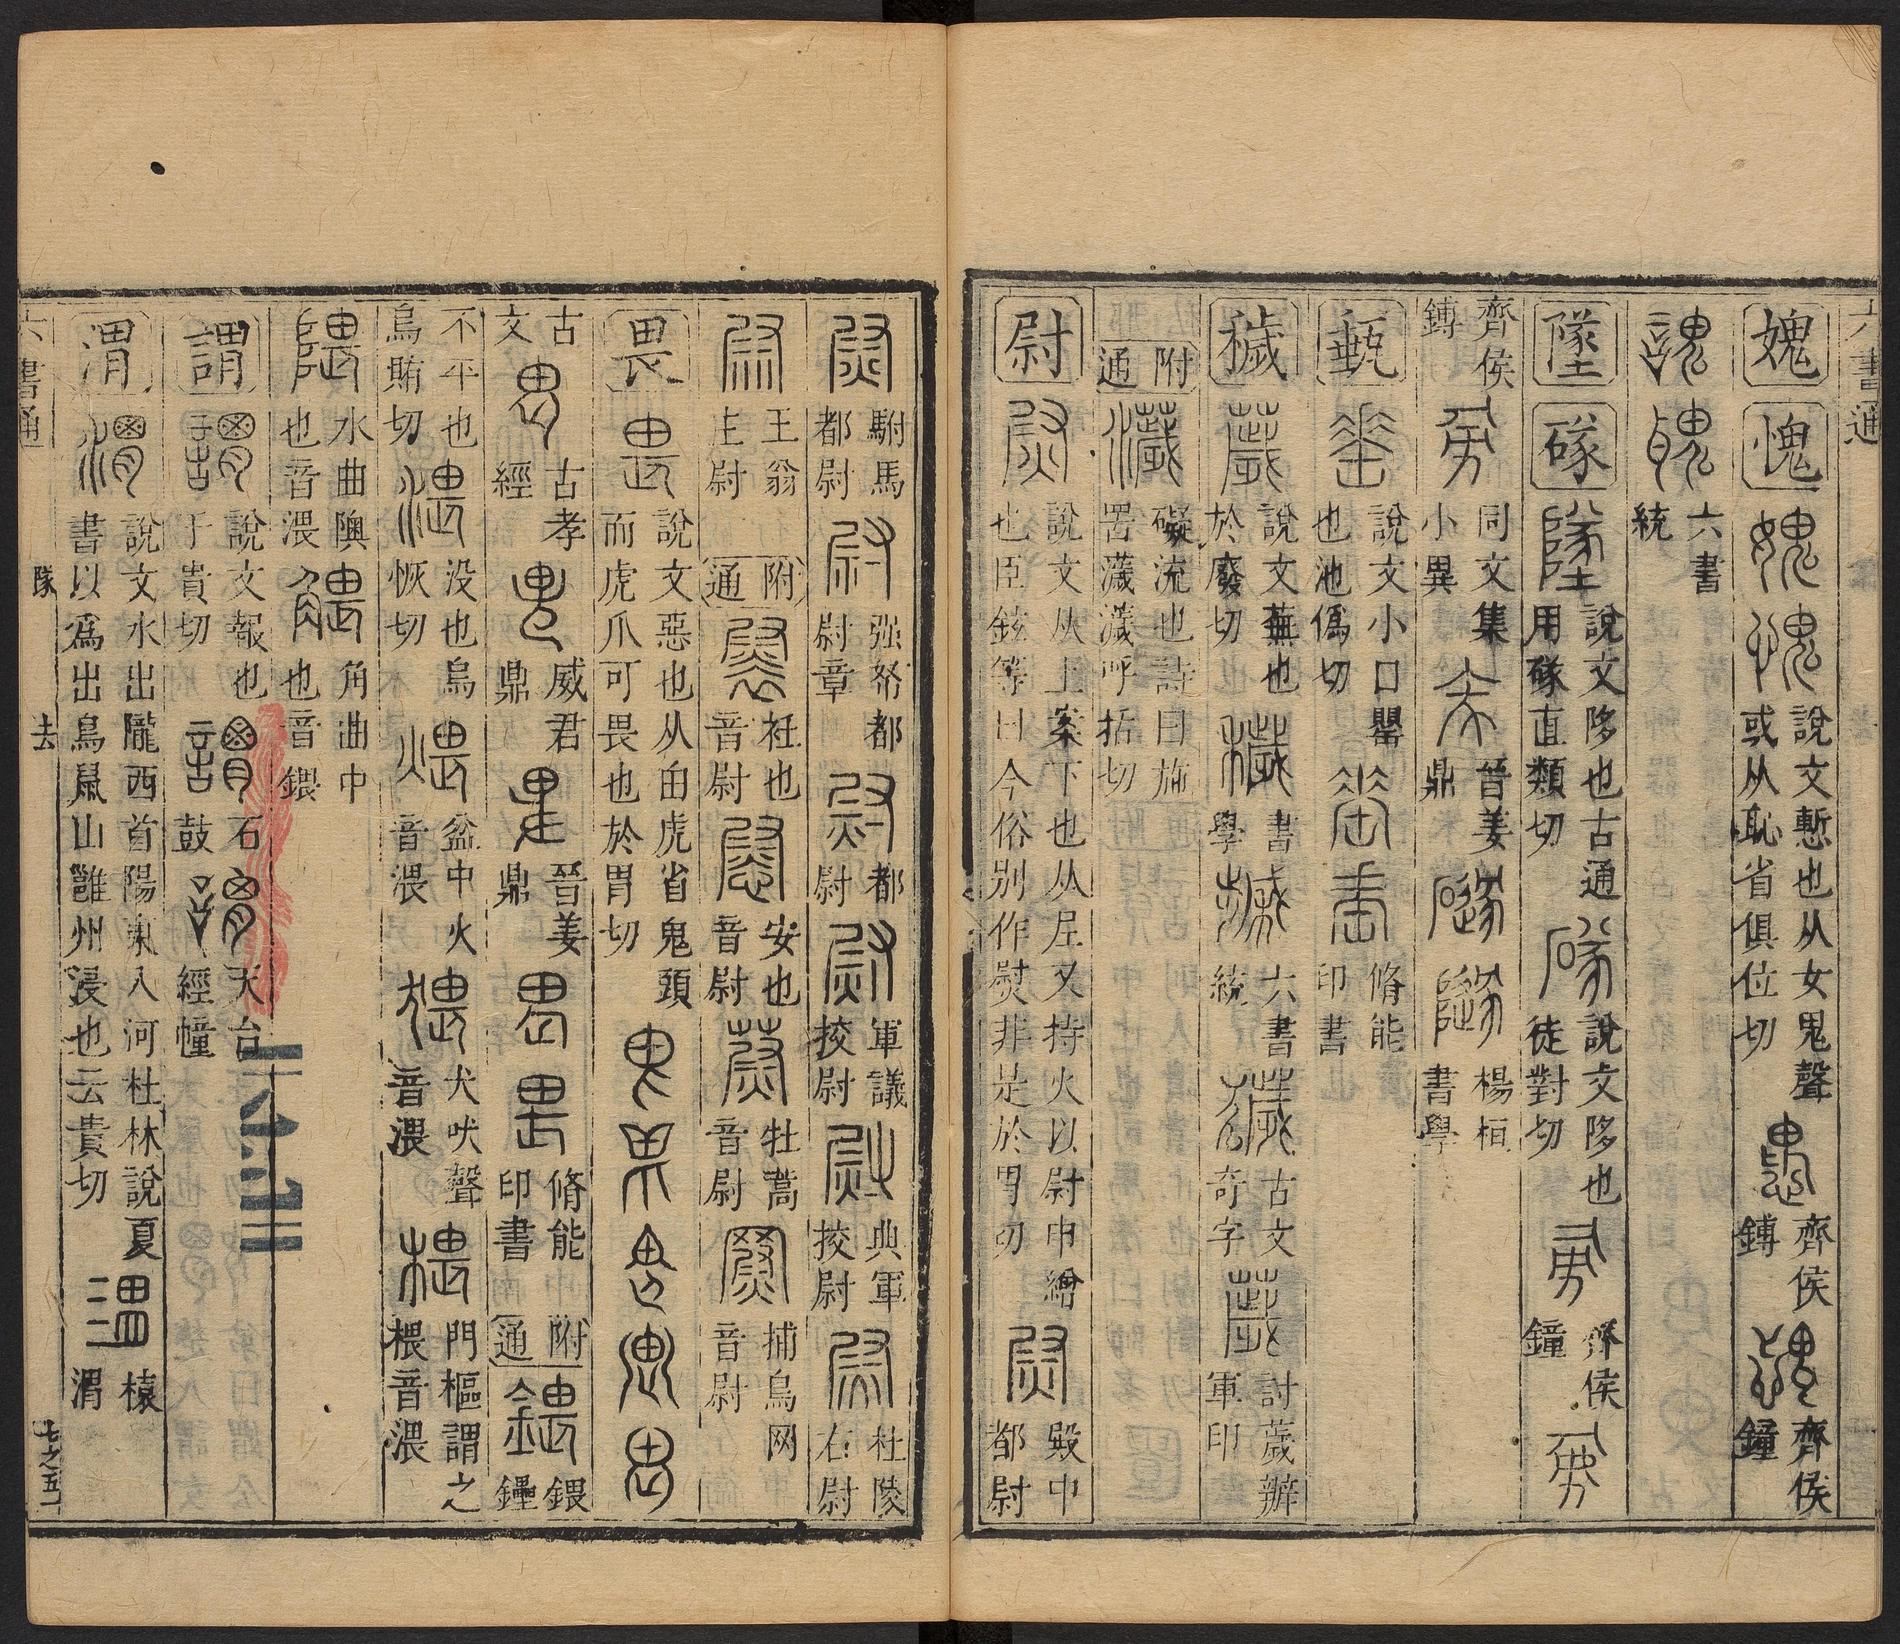 六書通
媿 愧 說文慙也从女鬼聲或从恥省俱位切 齊侯鎛 齊侯鐘
六書統
墜 䃍 說文陊也古通用䃍直類切 說文陊也徒對切 齊侯鐘
齊侯鎛 同文集小異 晉姜鼎 楊桓書學
甀 說文小口罌也池僞切 脩能印書
穢 說文蕪也於廢切 書學 六書統 古文奇字 討薉辦軍印
附通 礙流也詩曰施罟濊濊呼括切
尉 說文从上案下也从𡰥又持火以尉申繒也臣鉉等曰今俗別作熨非是於胃切 殿中都尉
駙馬都尉 强弩都尉章 都尉 軍議挍尉 典軍挍尉 杜陵右尉
王翁主尉 附通 衽也音尉 安也音尉 牡蒿音尉 捕鳥网音尉
畏 說文惡也从甶虎省鬼頭而虎爪可畏也於胃切
古文 古孝經 威君鼎 晉姜鼎 脩能印書 附通 鍡鑸
不平也烏賄切 没也烏恢切 盆中火音渨 犬吠聲音渨 門樞謂之椳音渨
水曲隩也音渨 角曲中也音鍡
謂 說文報也于貴切 石鼓 天台經幢
渭 說文水出隴西首陽東入河杜林說夏書以爲出鳥鼠山雝州浸也云貴切 榬渭
六書通 隊 去 七之五一